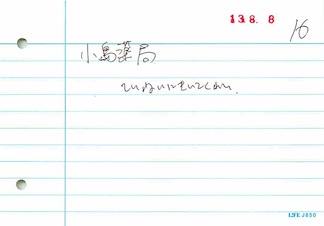 13.8.6
16
小島薬局
ていねいにきいてくれた.
LIFE J850